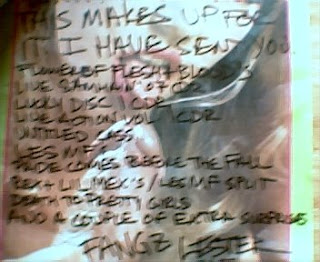 THIS MAKES UP FOR
IT. I HAVE SENT YOU
FLOWER OF FLESH & BLOOD'S
LIVE SAMHAIN 07 CDR
LUCKY DISC 1 CDR
LIVE ACTION VOL 1 CDR
UNTITLED CASS.
LES MF'S
COMES BEFORE THE FALL
REX + LILIMEX'S / LES MF SPLIT
DEATH TO PRETTY GIRLS
AND A COUPLE OF EXTRA SURPRISE
FANGZ LESTER